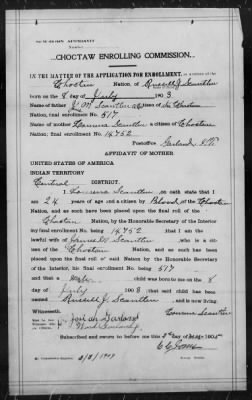 AFFIDAVIT
CHOCTAW ENROLLING COMMISSION.
IN THE MATTER OF THE APPLICATION FOR ENROLLMENT, as a citizen of the
Choctaw Nation, of Russell J. Scantlen
born on the 8 day of July 1903
Name of father J M Scantlen a citizen of the Choctaw
Nation, final enrollment No. 517
Name of mother Scantlen a citizen of Choctaw
Nation, final enrollment No. 14752
Postoffice Garland I.T.
AFFIDAVIT OF MOTHER
UNITED STATES OF AMERICA
INDIAN TERRITORY
Central DISTRICT.
I Scantlen, on oath state that I
am 24 years of age and a citizen by Blood of the Choctaw
Nation, and as such have been placed upon the final roll of the
Choctaw Nation, by the Honorable Secretary of the Interior
my final enrollment number being 14752 that I am the
lawful wife of James M. Scantlen, who is a citi-
zen of the Choctaw Nation, and as such has been
placed upon the final roll of said Nation by the Honorable Secretary
of the Interior, his final enrollment No. being 517
and that a male child was born to me on the 8
day of July 1903 that said child has been
named Russell J. Scantlen, and is now living.
Scantlen
Josiah Garland
Ward Garland
Subscribed and sworn to before me this day of